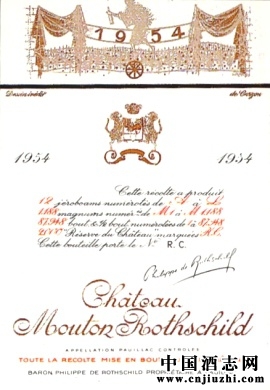 1954
Dessin inédit de Carzou
1954 1954
Cette récolte a produit
12 jéroboams numérotés de A à L
1188 magnums numér. de M 1 à M 1188
87.948 bout. & ½ bout. numérotées de 1 à 87.948
2000 Réserve du Château marquées R.C.
Cette bouteille porte le No R.C.
Philippe de Rothschild
Château
Mouton Rothschild
APPELLATION PAUILLAC CONTROLÉE
TOUTE LA RÉCOLTE MISE EN BOUT
BARON PHILIPPE DE ROTHSCHILD PROPRIÉTAIRE A PAUIL
中国酒志网
www.cnjuzhi.com